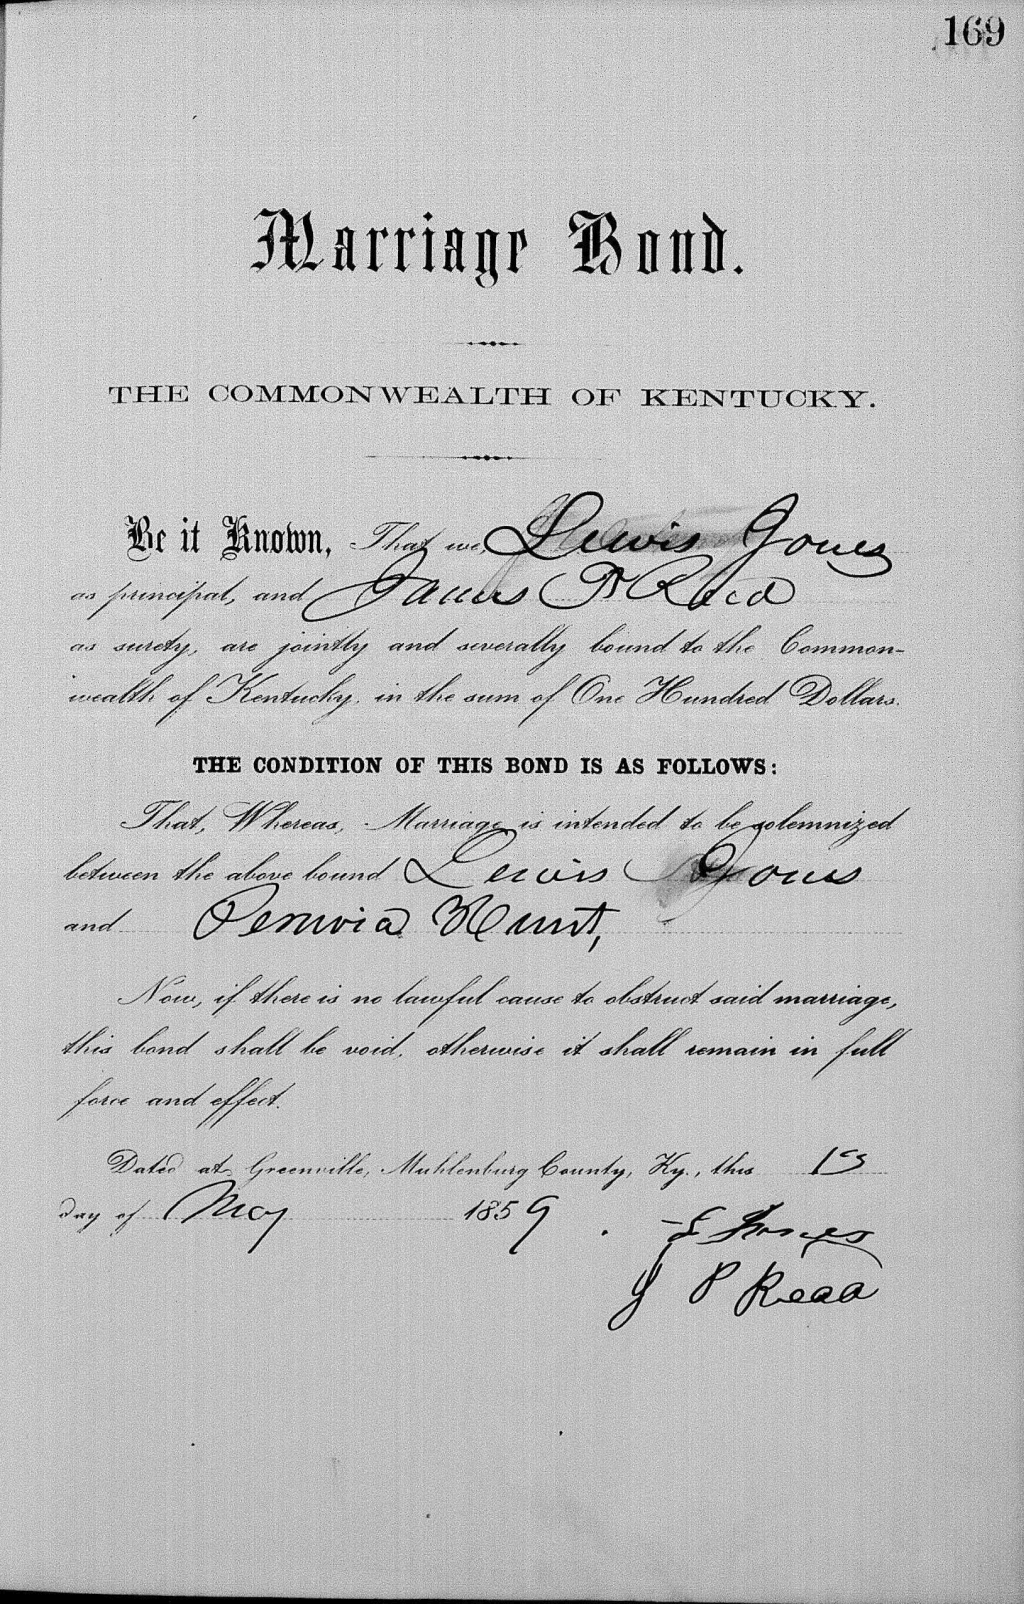 169
Marriage Bond.
THE COMMONWEALTH OF KENTUCKY.
Be it Known, That we, Lewis Jones
as principal, and James P Read
as surety, are jointly and severally bound to the Common-
wealth of Kentucky, in the sum of One Hundred Dollars.
THE CONDITION OF THIS BOND IS AS FOLLOWS:
That, Whereas, Marriage is intended to be solemnized
between the above bound Lewis Jones
and Peruvia Hunt,
Now, if there is no lawful cause to obstruct said marriage,
this bond shall be void, otherwise it shall remain in full
force and effect.
Dated at Greenville, Muhlenburg County, Ky., this 1st
day of May 1859
L Jones
J P Read